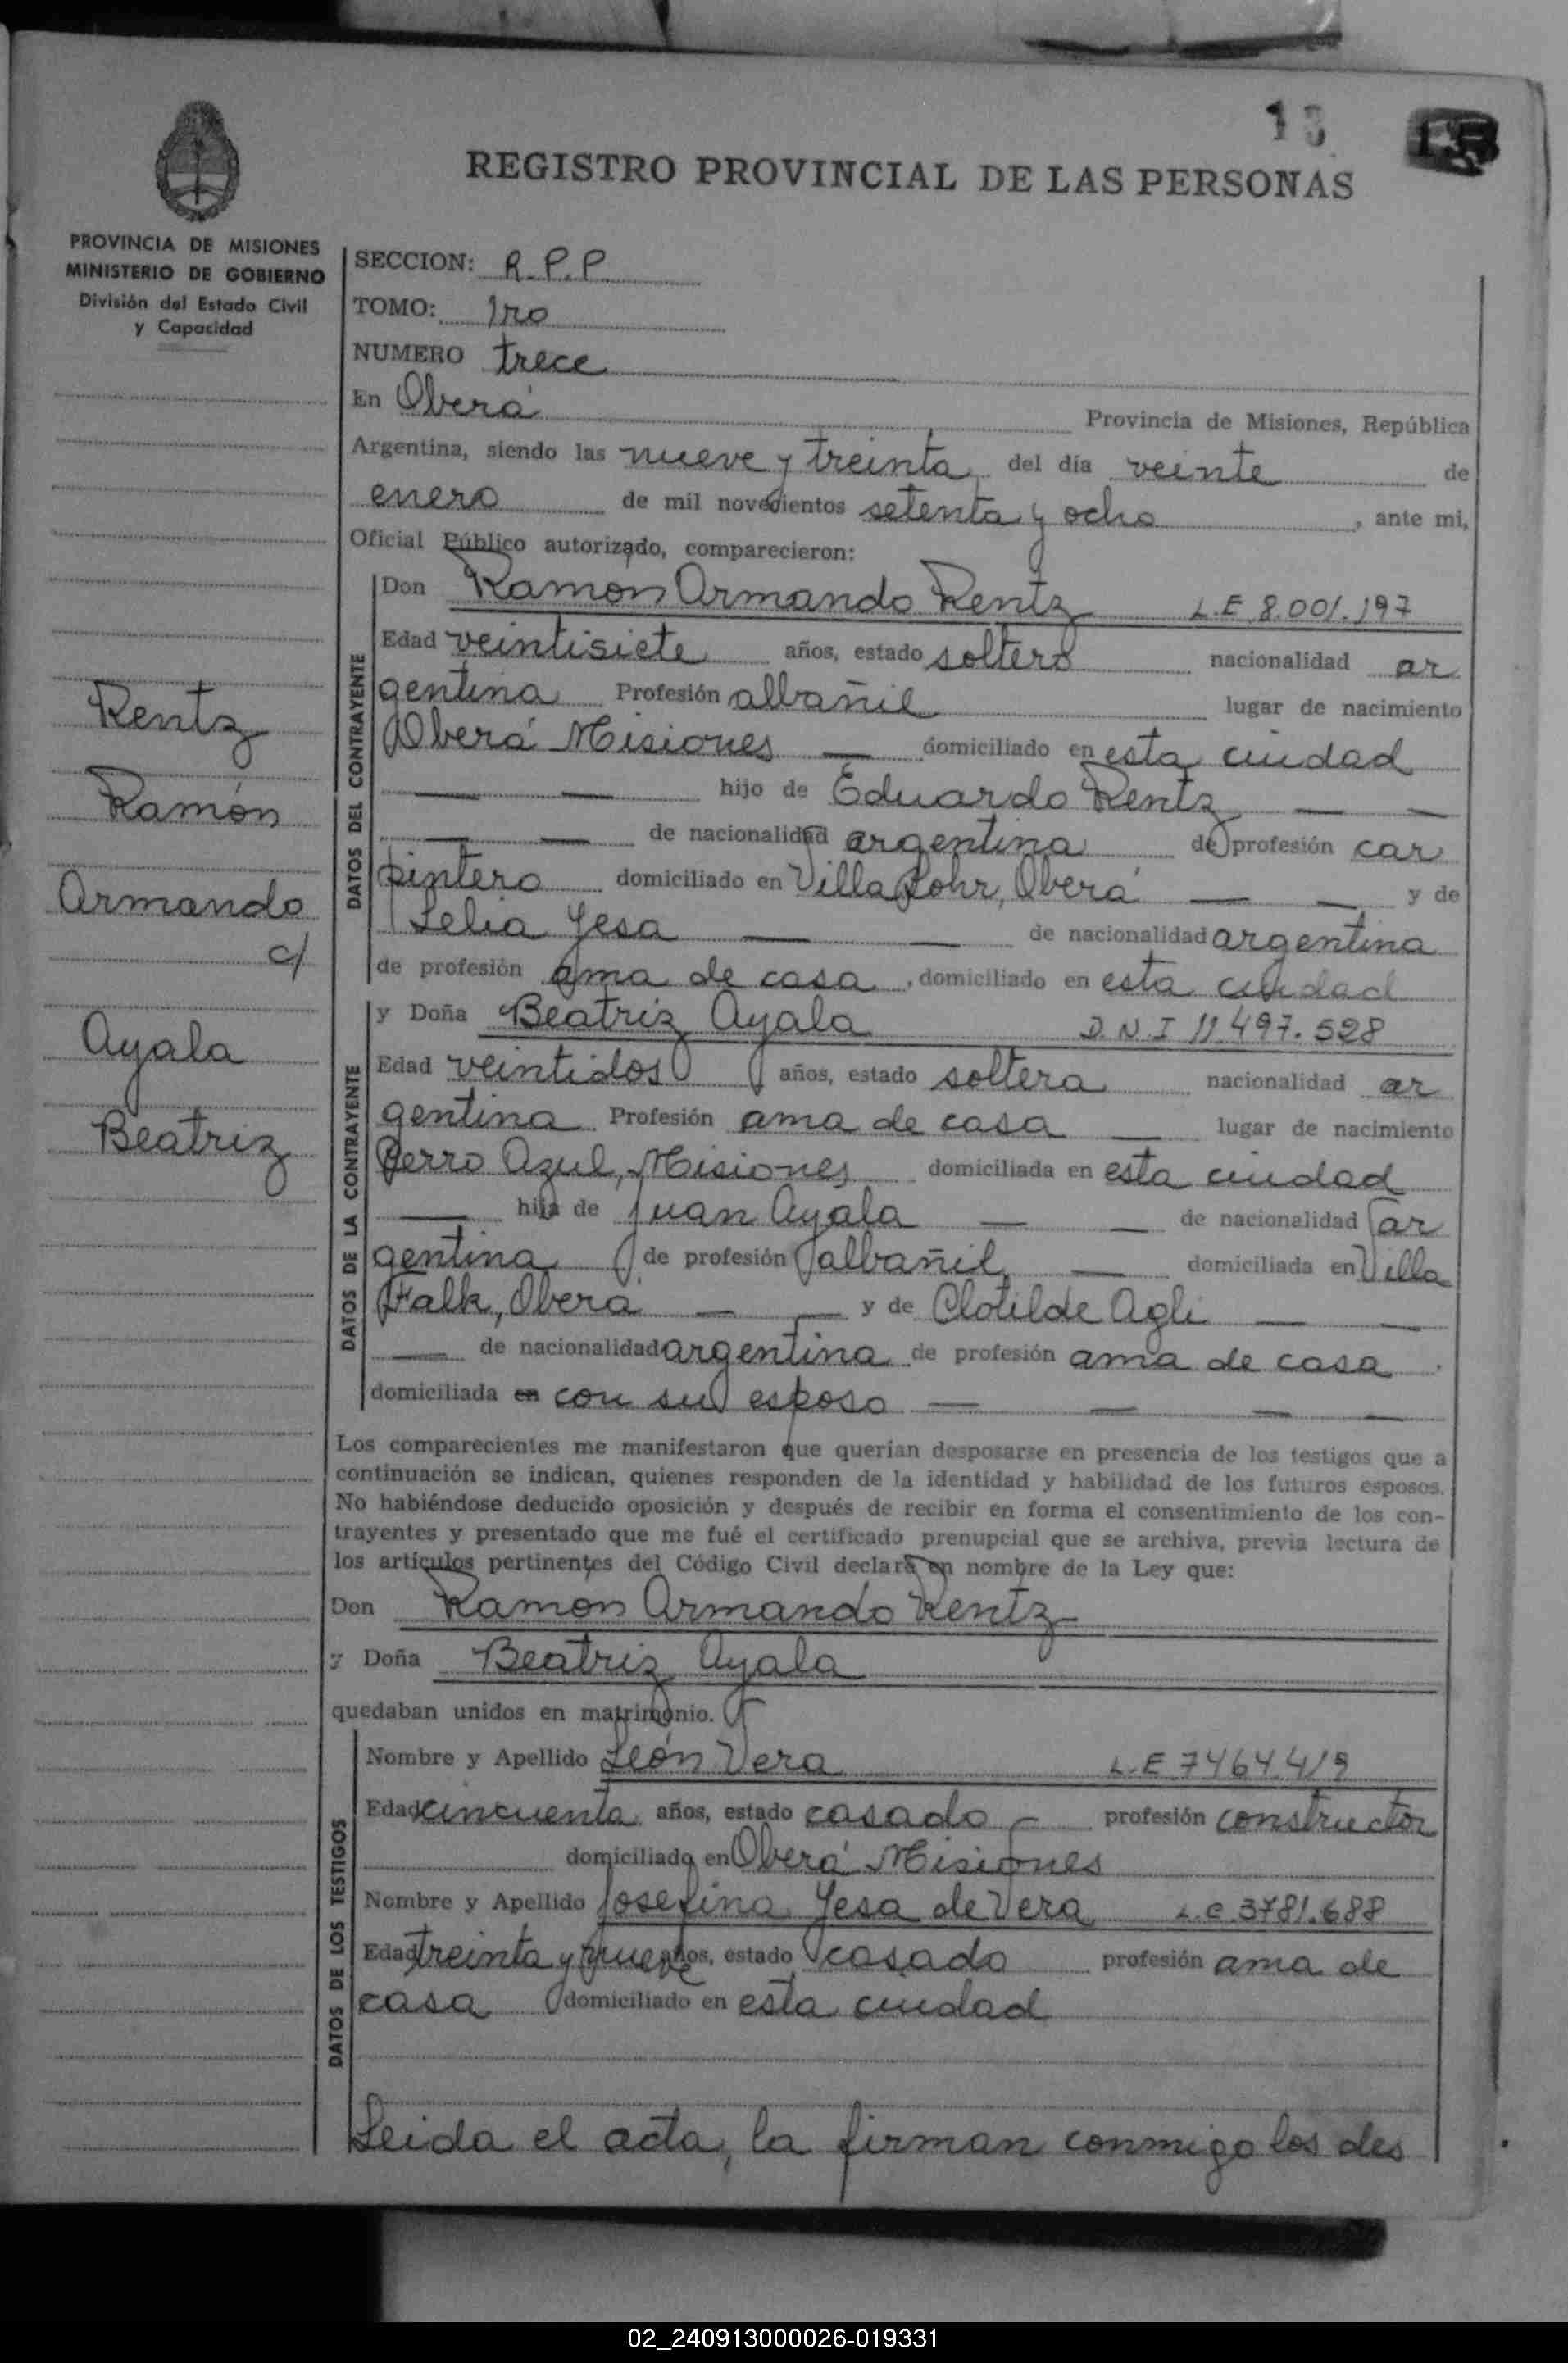 13
REGISTRO PROVINCIAL DE LAS PERSONAS
PROVINCIA DE MISIONES
MINISTERIO DE GOBIERNO
División del Estado Civil
y Capacidad
SECCION: R.P.P
TOMO: 1ro
NUMERO trece
En Oberá Provincia de Misiones, República
Argentina, siendo las nueve y treinta del día veinte de
enero de mil novecientos setenta y ocho, ante mi,
Oficial Público autorizado, comparecieron:
DATOS DEL CONTRAYENTE
Don Ramon Armando Rentz L.E 8.001.197
Edad veintisiete años, estado soltero nacionalidad ar
gentina Profesión albañil lugar de nacimiento
Oberá Misiones — domiciliado en esta ciudad
— — hijo de Eduardo Rentz — —
— — de nacionalidad argentina de profesión car
pintero domiciliado en Villa Lohr, Oberá — — y de
Lelia Yesa — — de nacionalidad argentina
de profesión ama de casa, domiciliado en esta ciudad
DATOS DE LA CONTRAYENTE
y Doña Beatriz Ayala D.N.I 11.497.528
Edad veintidos años, estado soltera nacionalidad ar
gentina Profesión ama de casa — lugar de nacimiento
Cerro Azul, Misiones domiciliada en esta ciudad
— hija de Juan Ayala — — de nacionalidad ar
gentina de profesión albañil — domiciliada en Villa
Falk, Oberá — — y de Clotilde Agli — —
— de nacionalidad argentina de profesión ama de casa.
domiciliada en con su esposo — — — —
Los comparecientes me manifestaron que querían desposarse en presencia de los testigos que a
continuación se indican, quienes responden de la identidad y habilidad de los futuros esposos.
No habiéndose deducido oposición y después de recibir en forma el consentimiento de los con-
trayentes y presentado que me fué el certificado prenupcial que se archiva, previa lectura de
los artículos pertinentes del Código Civil declaré en nombre de la Ley que:
Don Ramon Armando Rentz
y Doña Beatriz Ayala
quedaban unidos en matrimonio.
DATOS DE LOS TESTIGOS
Nombre y Apellido León Vera L.E 7464419
Edad cincuenta años, estado casado — profesión constructor
domiciliado en Oberá Misiones
Nombre y Apellido Josefina Yesa de Vera L.C 3781.688
Edad treinta y nueve años, estado casado profesión ama de
casa domiciliado en esta ciudad
Leida el acta, la firman conmigo los des
Rentz
Ramón
Armando
c/
Ayala
Beatriz
02_240913000026-019331